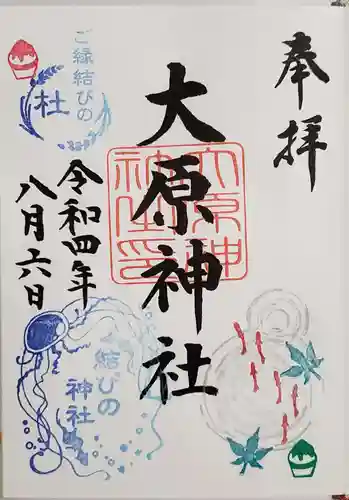 奉拝
大原神社
令和四年
八月六日
ご縁結びの
杜
結びの
神社